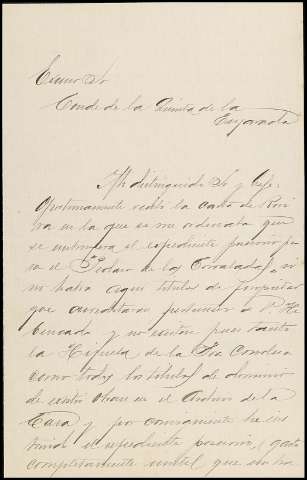 Excmo Sr
Conde de la Quinta de la
Enjarada
Mi distinguido Sr y Jefe:
Oportunamente recibi la carta de
en la que se me ordenaba que
se instruyera el expediente posesorio
en el de los Corralada, si
no habia aqui titulos de propiedad
que acreditaran pertenecer a P.
y no existen pues tanto
la Hijuela de la Sra Condesa
como todos los titulos de dominio
de estos obran en el Archivo de la
Casa y por consiguiente he ins
truido el expediente posesorio, gasto
completamente inutil que